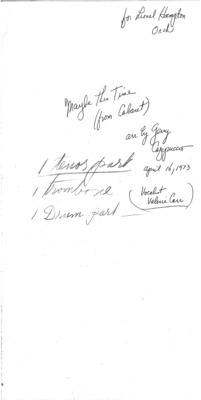 for Lionel Hampton
Orch
Maybe This Time
(from Cabaret)
arr by Gary
Cappuccio
april 16, 1973
1 tenor part
1 Trombone
(Vocalist
Valerie Carr)
1 Drum part